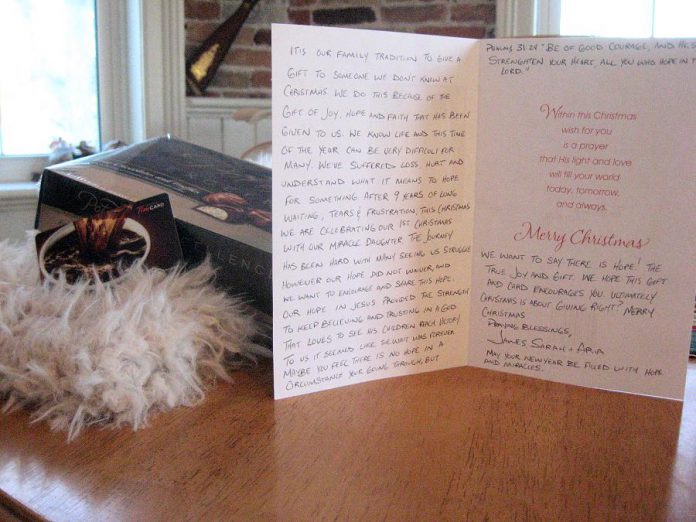 IT IS OUR FAMILY TRADITION TO GIVE A
GIFT TO SOMEONE WE DON'T KNOW AT
CHRISTMAS. WE DO THIS BECAUSE OF THE
GIFT OF JOY, HOPE AND FAITH THAT HAS BEEN
GIVEN TO US. WE KNOW LIFE AND THIS TIME
OF THE YEAR CAN BE VERY DIFFICULT FOR
MANY. WE'VE SUFFERED LOSS, HURT AND
UNDERSTAND WHAT IT MEANS TO HOPE
FOR SOMETHING. AFTER 9 YEARS OF LONG
WAITING, TEARS & FRUSTRATION, THIS CHRISTMAS
WE ARE CELEBRATING OUR 1ST CHRISTMAS
WITH OUR MIRACLE DAUGHTER. THE JOURNEY
HAS BEEN HARD WITH MANY SEEING US STRUGGLE
HOWEVER OUR HOPE DID NOT WAIVER, AND
WE WANT TO ENCOURAGE AND SHARE THIS HOPE.
OUR HOPE IN JESUS PROVIDED THE STRENGTH
TO KEEP BELIEVING AND TRUSTING IN A GOD
THAT LOVES TO SEE HIS CHILDREN REACH VICTORY
TO US IT SEEMED LIKE THE WAIT WAS FOREVER
MAYBE YOU FEEL THERE IS NO HOPE IN A
CIRCUMSTANCE YOUR GOING THROUGH, BUT
PSALMS 31:24 "BE OF GOOD COURAGE, AND HE S
STRENGHTEN YOUR HEART, ALL YOU WHO HOPE IN T
LORD."
Within this Christmas
wish for you
is a prayer
that His light and love
will fill your world
today, tomorrow,
and always.
Merry Christmas
WE WANT TO SAY THERE IS HOPE! THE
TRUE JOY AND GIFT. WE HOPE THIS GIFT
AND CARD ENCOURAGES YOU. ULTIMATELY
CHRISTMAS IS ABOUT GIVING RIGHT? MERRY
CHRISTMAS
BLESSINGS,
JAMES, SARAH + ARIA
MAY YOUR NEW YEAR BE FILLED WITH HOPE
AND MIRACLES.